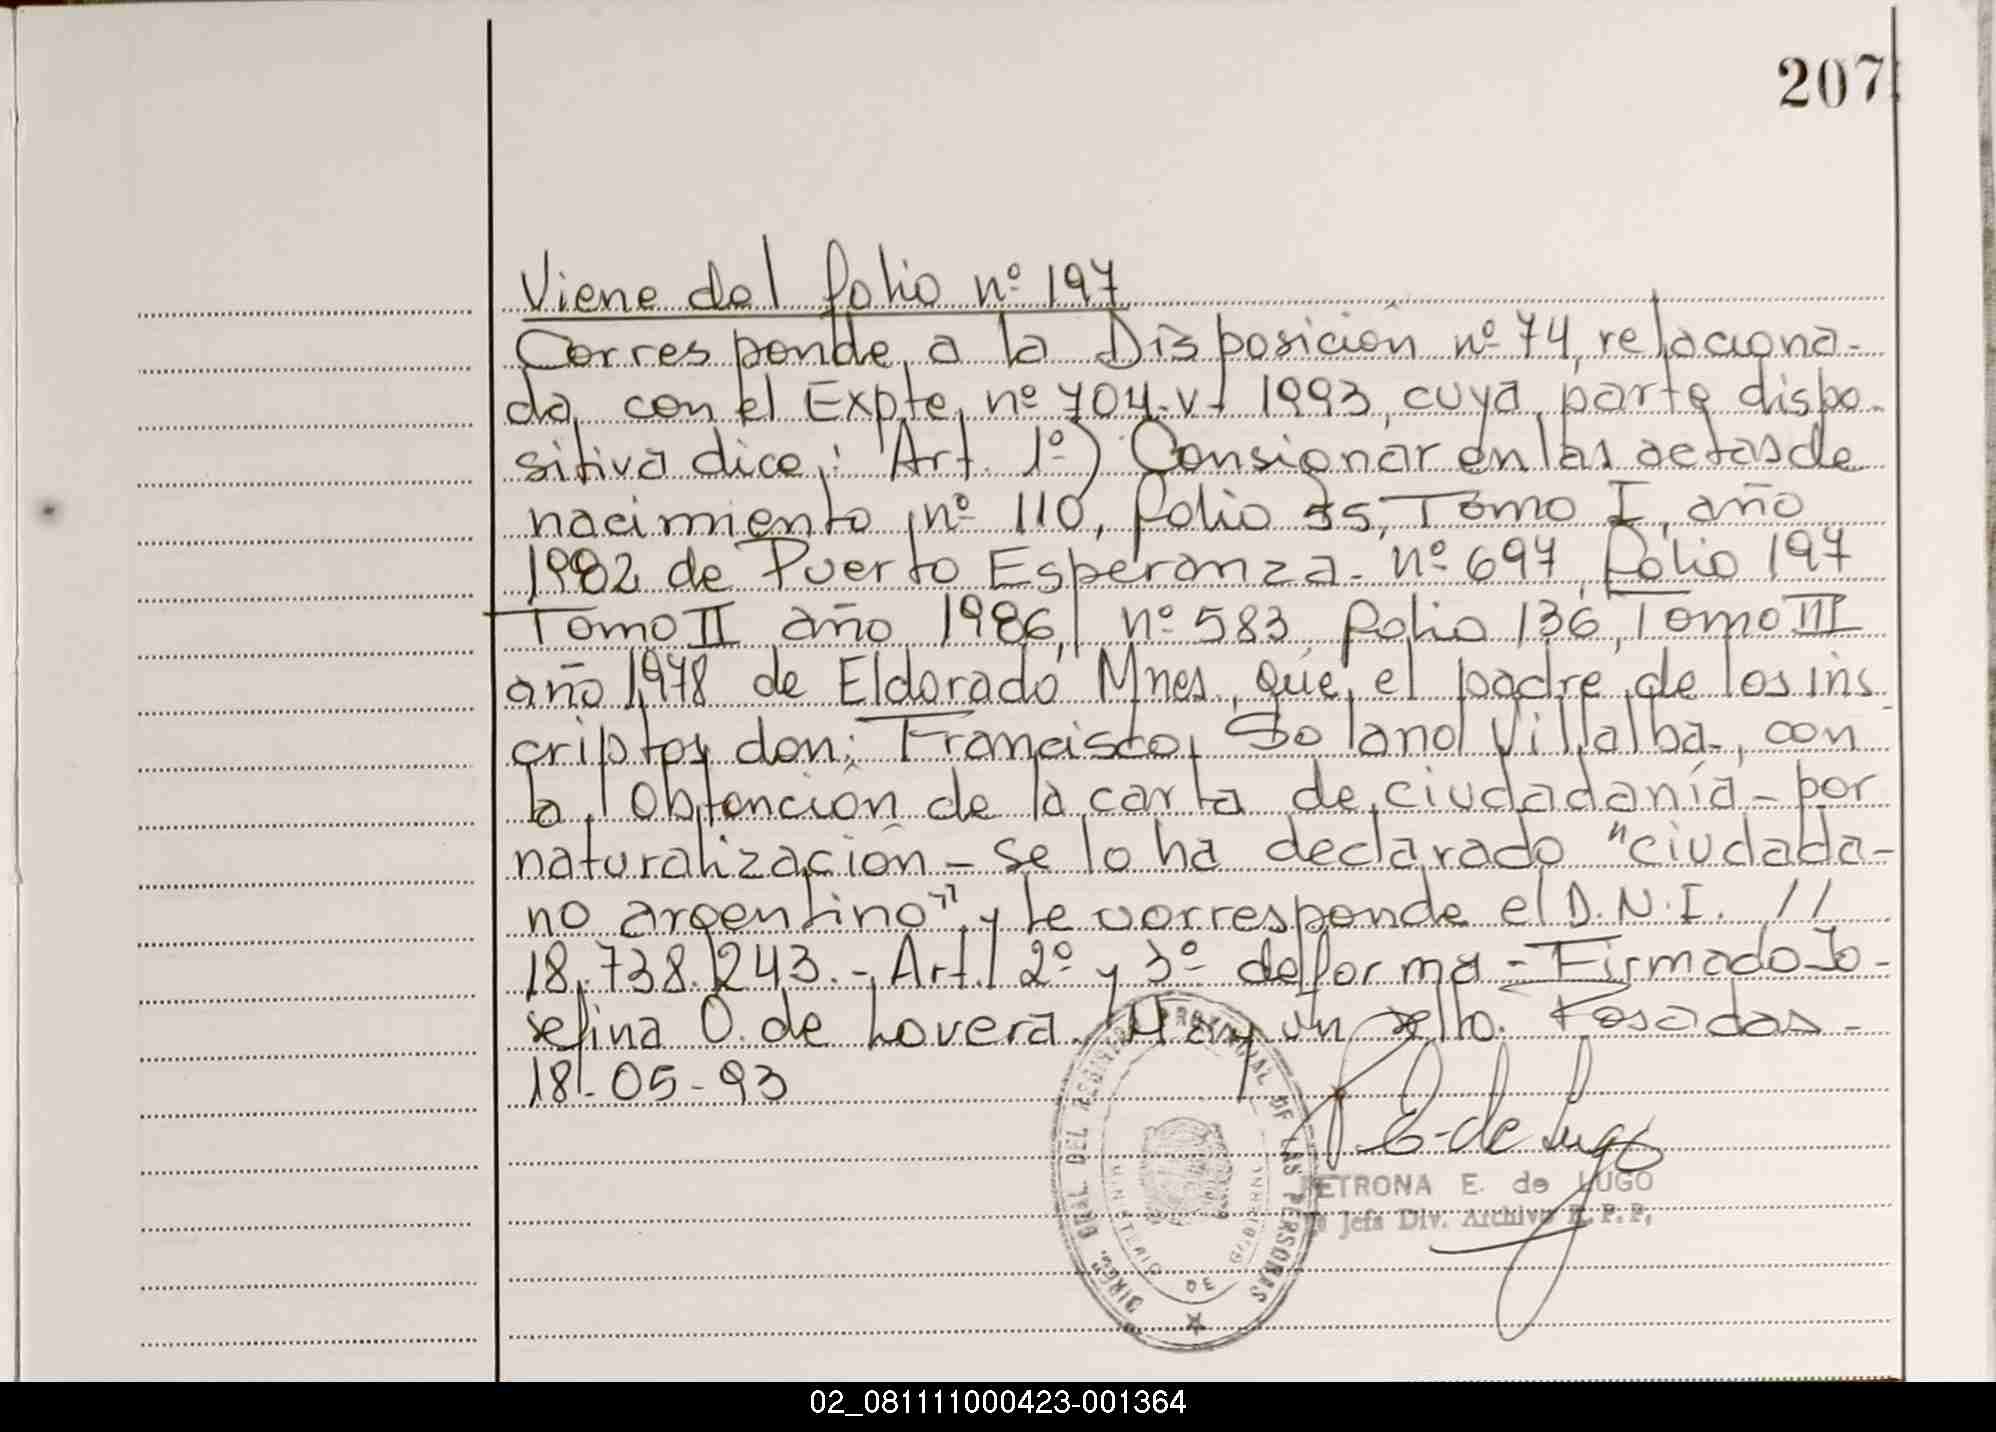 207
Viene del folio nº 197
Corresponde a la Disposición nº 74, relaciona-
da con el Expte, nº 704-V- 1993, cuya parte dispo-
sitiva dice: Art. 1º) Consionar en las actas de
nacimiento nº 110, folio 55, Tomo I, año
1982 de Puerto Esperanza - nº 697, folio 197
Tomo II año 1986, nº 583 folio 136, Tomo III
año 1978 de Eldorado Mnes, que, el padre de los ins-
criptos don: Francisco Solano Villalba, con
la obtención de la carta de ciudadanía - por
naturalización - se lo ha declarado "ciudada-
no argentino" y le corresponde el D.N.I. //
18.738.243.- Art. 2º y 3º de forma - Firmado Jo-
sefina O. de Lovera. Hay un sello. Posadas -
18-05-93
P. E. de Lugo
PETRONA E. de LUGO
Jefa Div. Archivo R. P. P.
DIREC. GRAL. DEL REGISTRO PROVINCIAL DE LAS PERSONAS
MINISTERIO DE GOBIERNO
02_081111000423-001364